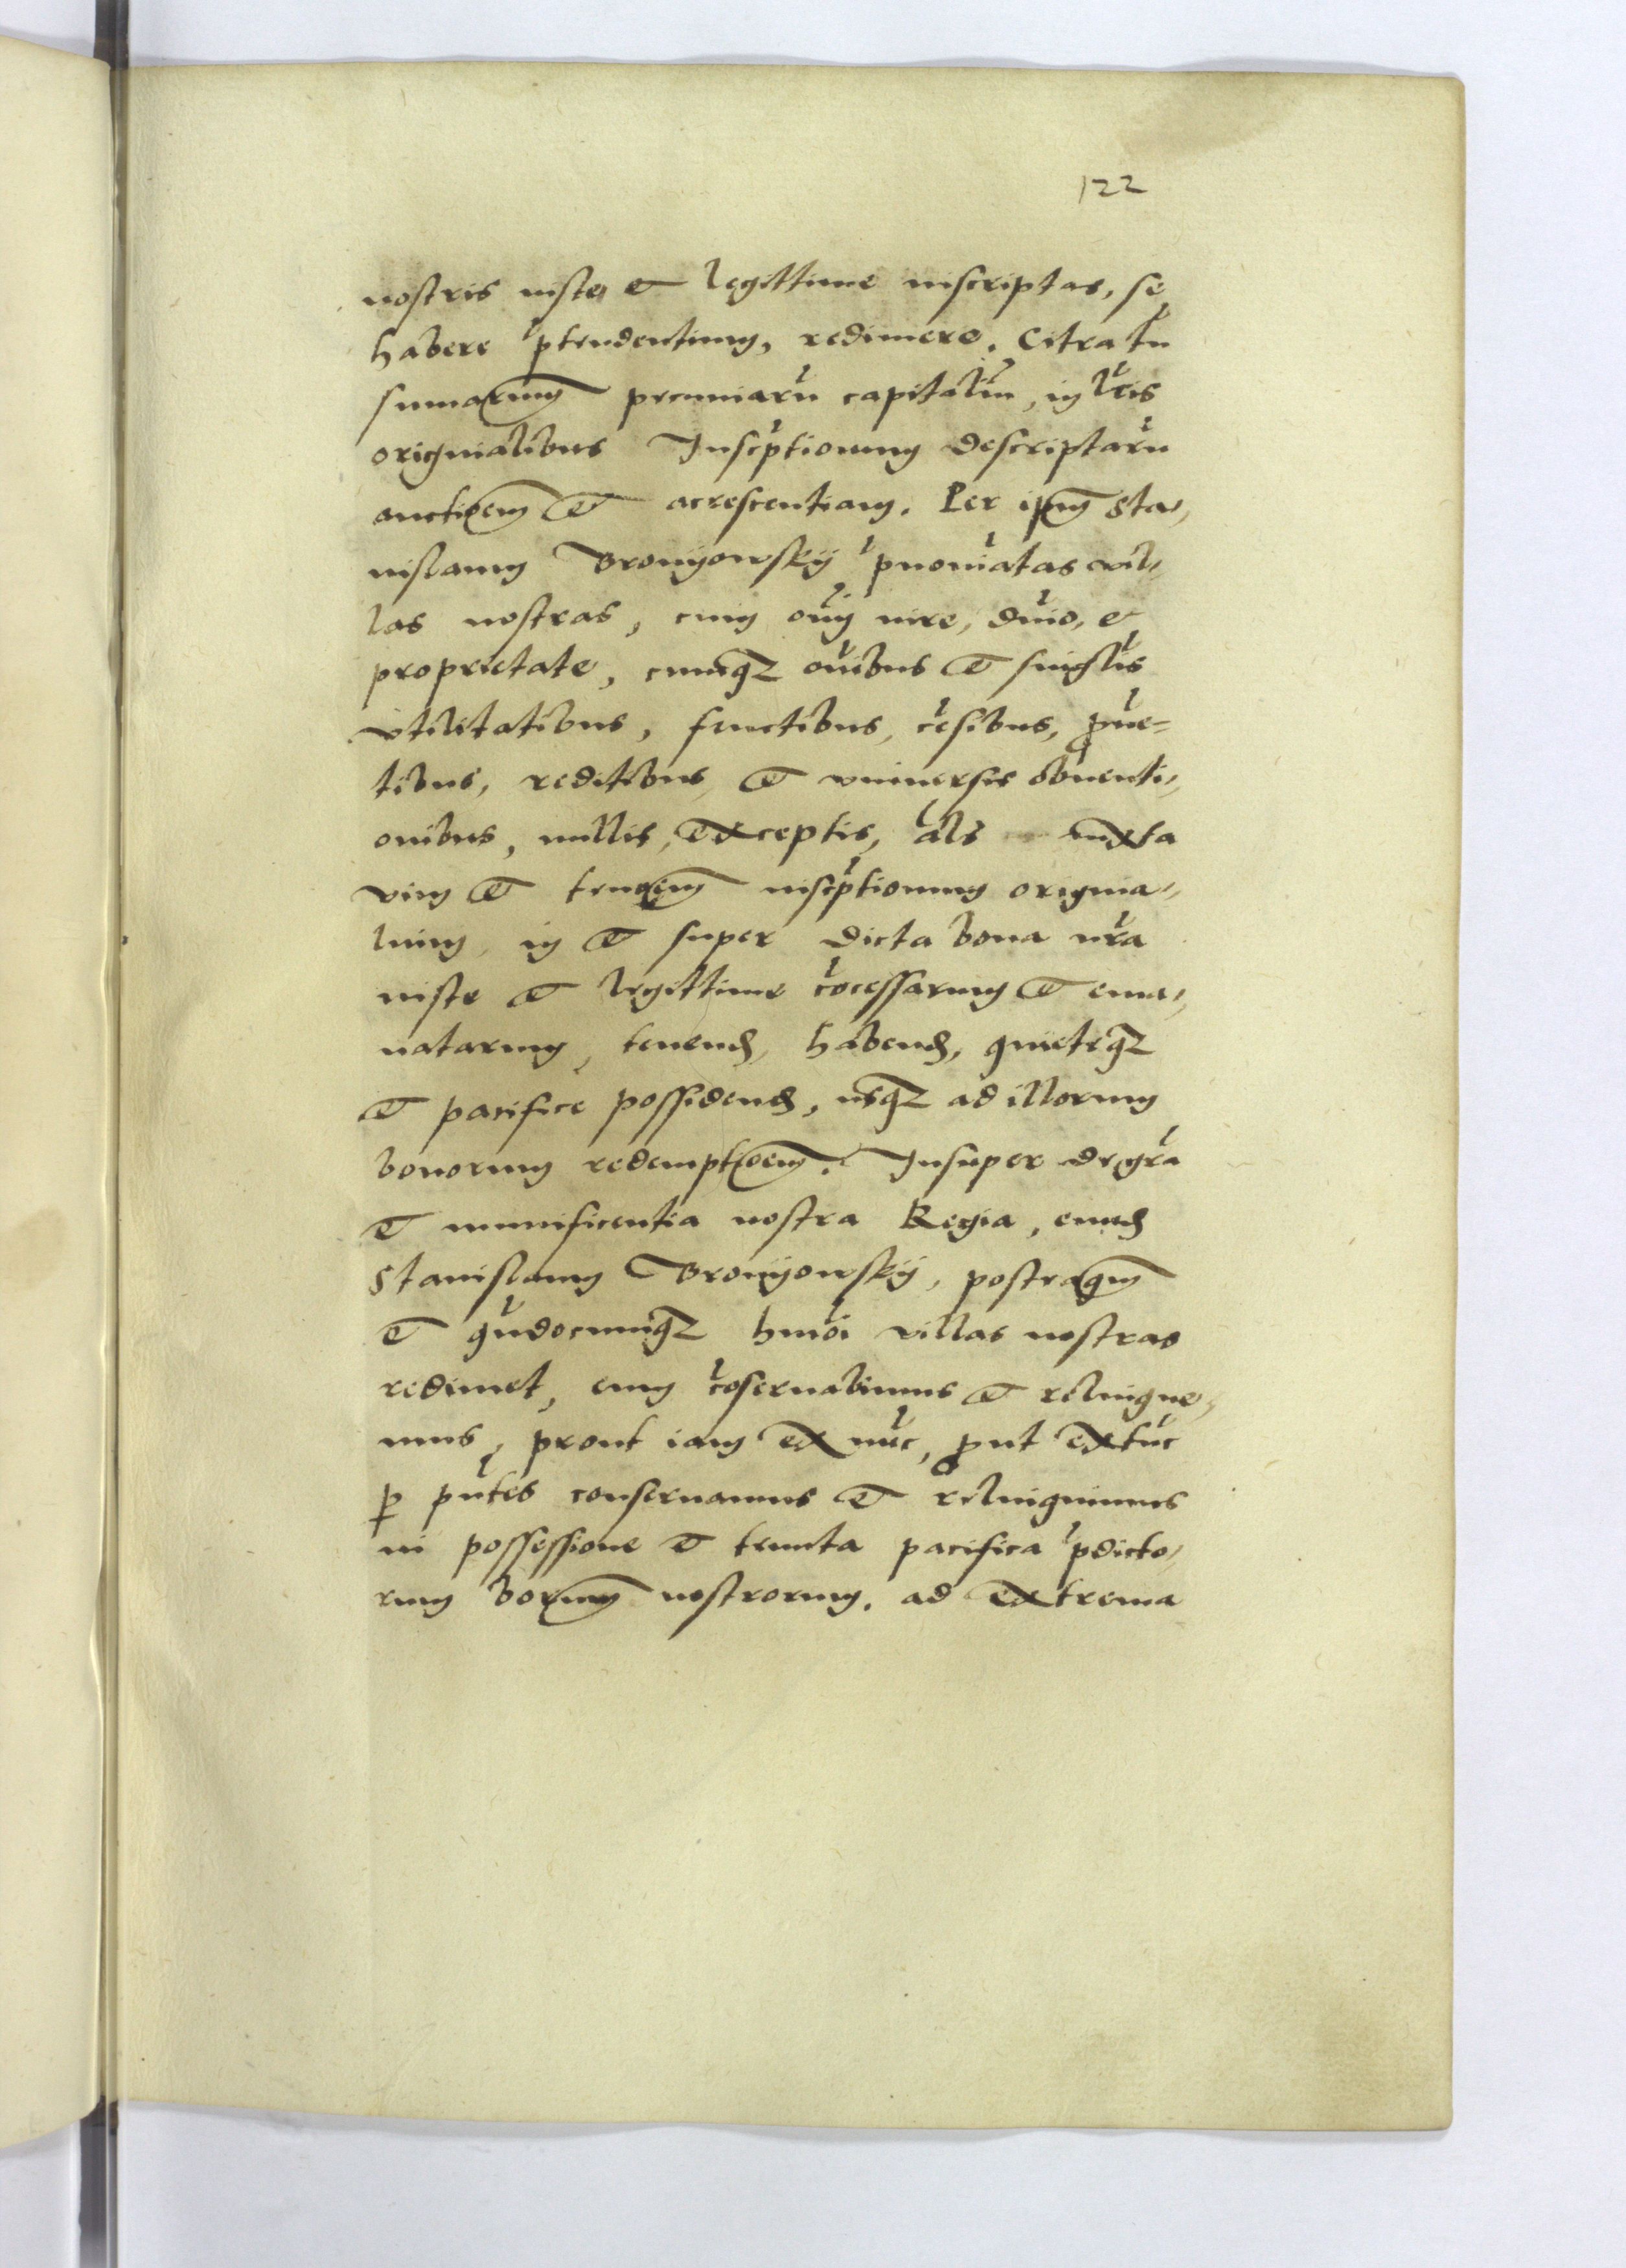 122
nostris iuste et legittime inscriptas, se
habere ptendentium, redimere. Citra tn
sumarum pecuniaru capitaliu, in lris
originalibus Inscptionum descriptaru
auctioem et acrescentiam. Per ipm Sta„
nislaum Bronyowsky pnoiatas vil„
las nostras, cum oni iure, dnio, et
proprietate, cumqz onibus et singlis
vtilitatibus, fructibus, cesibus, pue=
tibus, reditibus, et vniuersis obuenti„
onibus, nullis, exceptis, als iuxta
vim et tenoem inscptionum origina„
lium, in et super dicta bona nra
iuste et legittime cocessarum et ema„
natarum, tenend, habend, quieteqz
et pacifice possidend, usqz ad illorum
bonorum redemptioem. Insuper de gra
et munificentia nostra Regia, eund
Stanislaum Bronyowsky, posteaqm
et qudocunqz hmoi villas nostras
redimet, eum coseruabimus et relinque„
mus, prout iam ex nuc, put extuc
p pntes conseruamus et relinquimus
in possessione et tenuta pacifica pdicto„
rum borum nostrorum, ad extrema